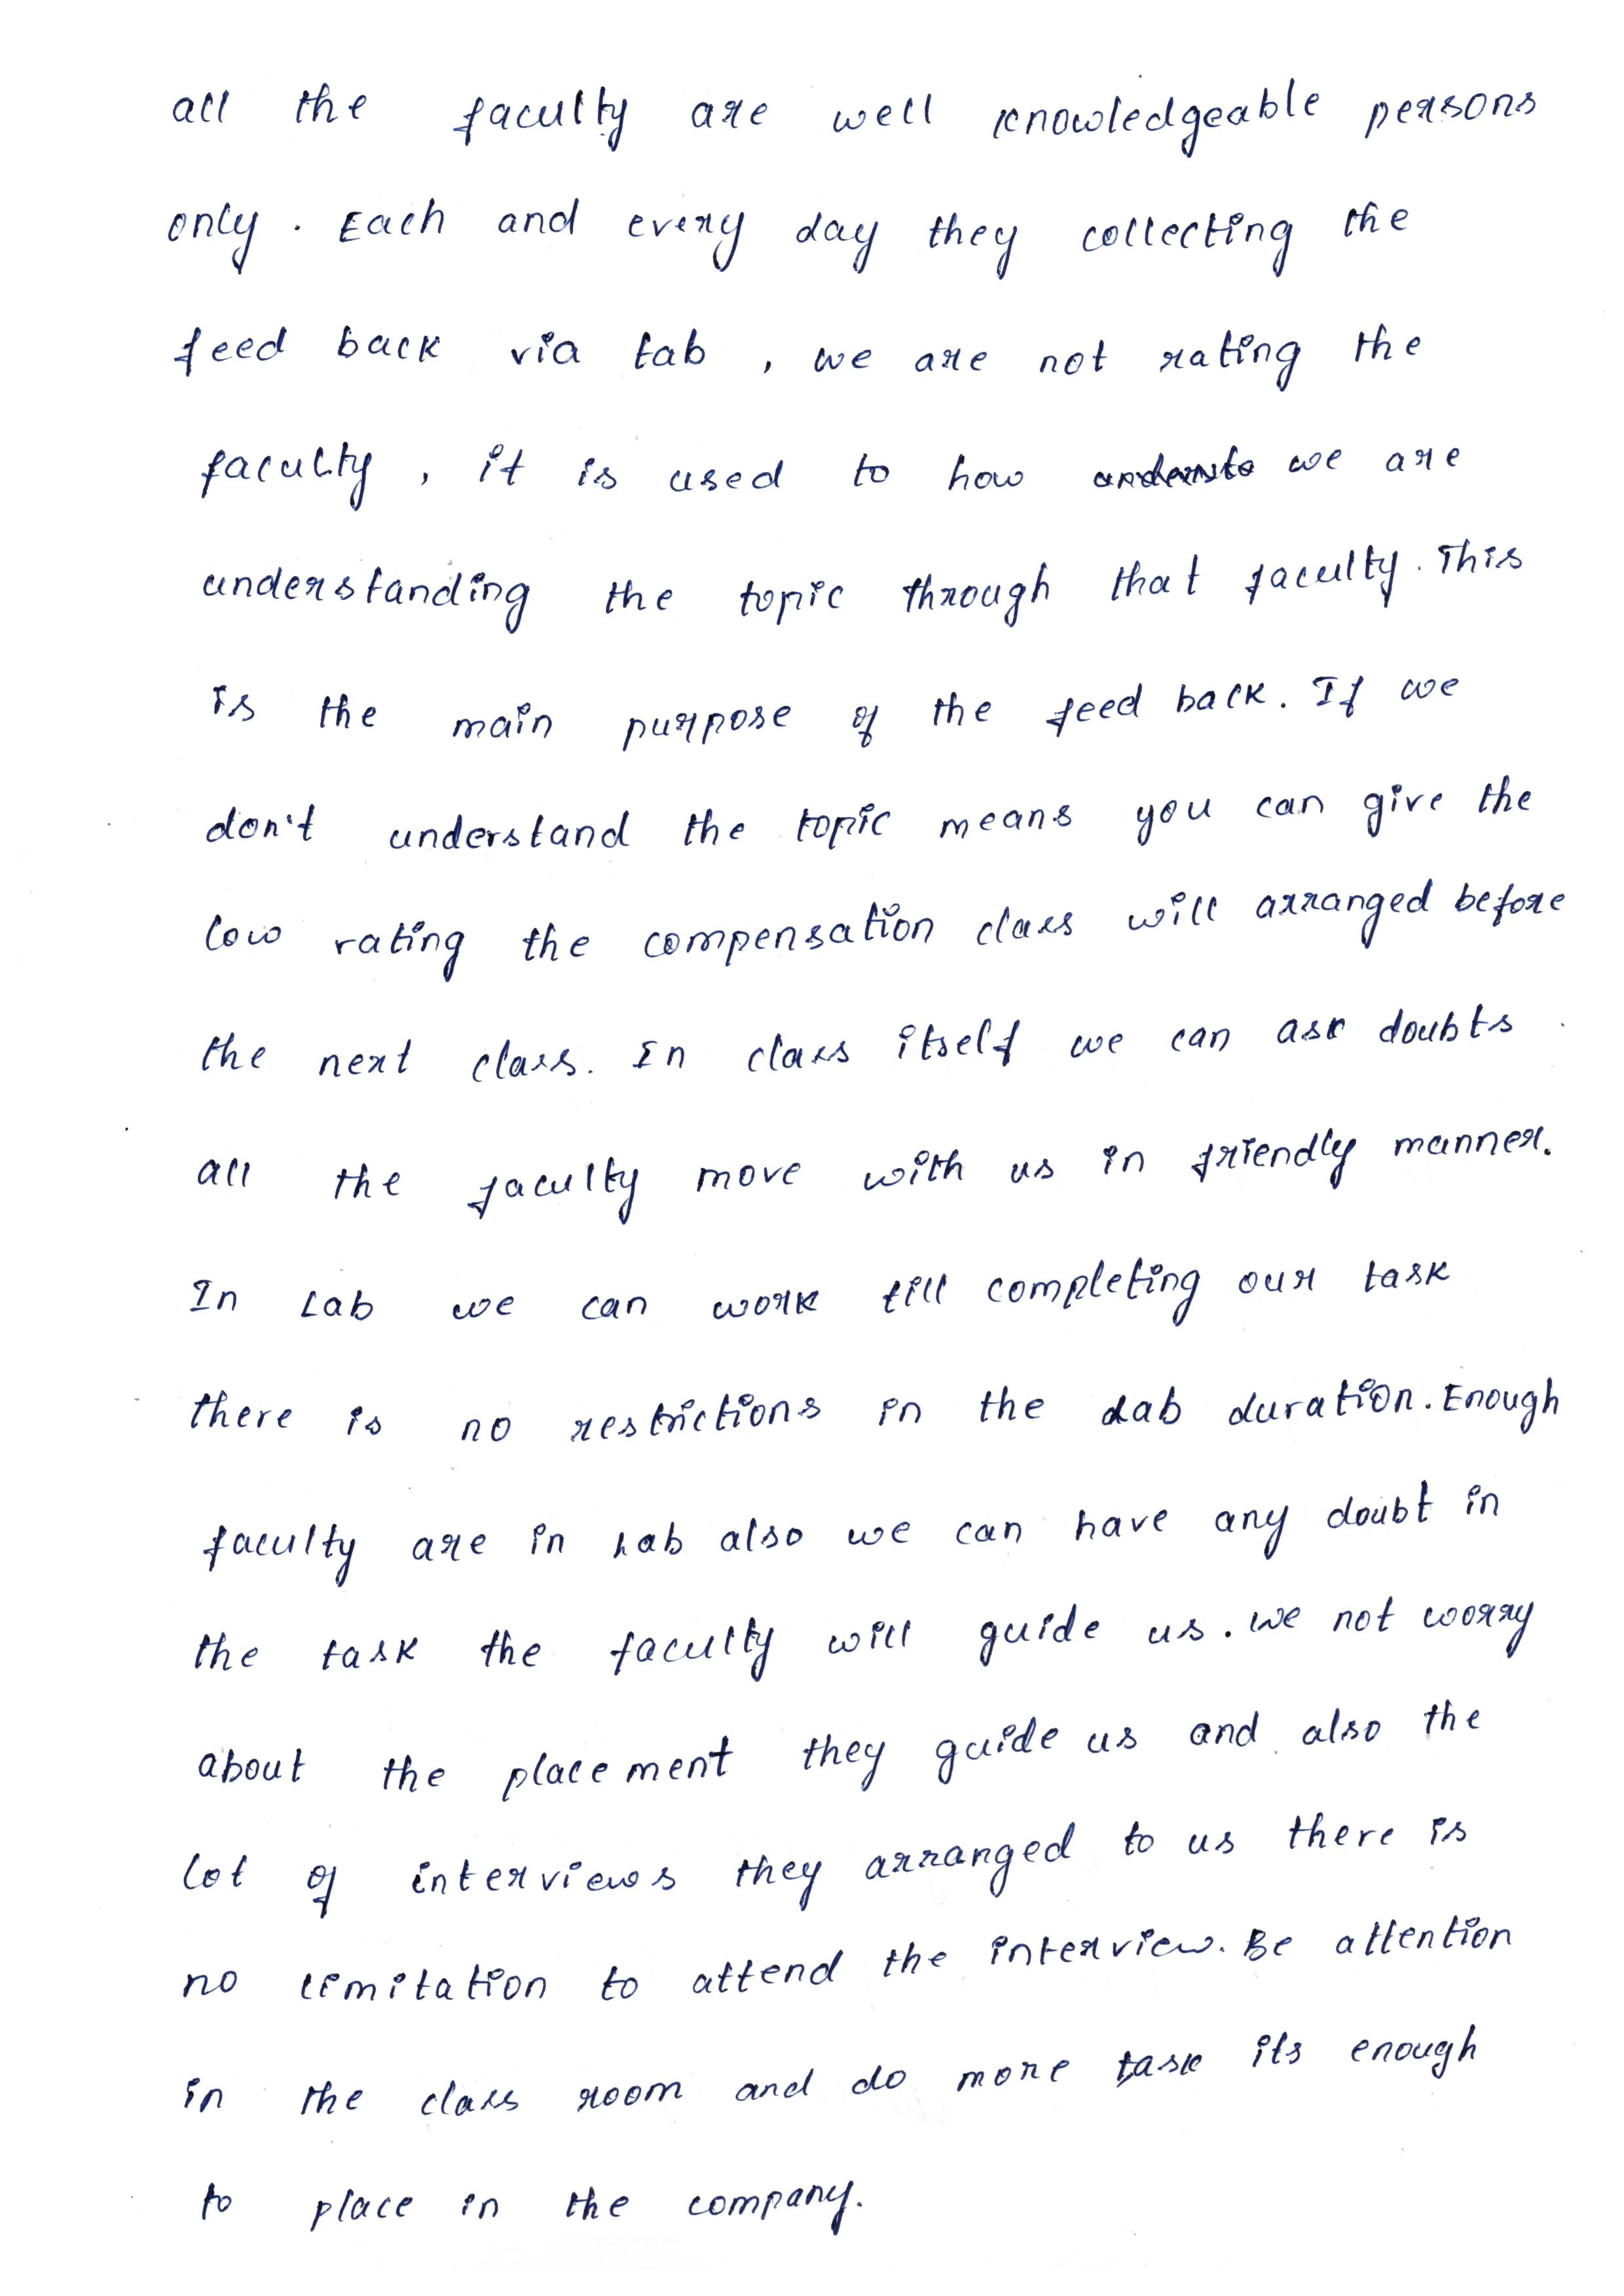 all the faculty are well knowledgeable persons
only. Each and every day they collecting the
feed back via tab, we are not rating the
faculty, it is used to how we are
understanding the topic through that faculty. This
is the main purpose of the feed back. If we
don't understand the topic means you can give the
low rating the compensation class will arranged before
the next class. In class itself we can ask doubts
all the faculty move with us in friendly manner.
In Lab we can work till completing our task
there is no restrictions in the Lab duration. Enough
faculty are in Lab also we can have any doubt in
the task the faculty will guide us. We not worry
about the placement they guide us and also the
lot of interviews they arranged to us there is
no limitation to attend the interview. Be attention
in the class room and do more task its enough
to place in the company.